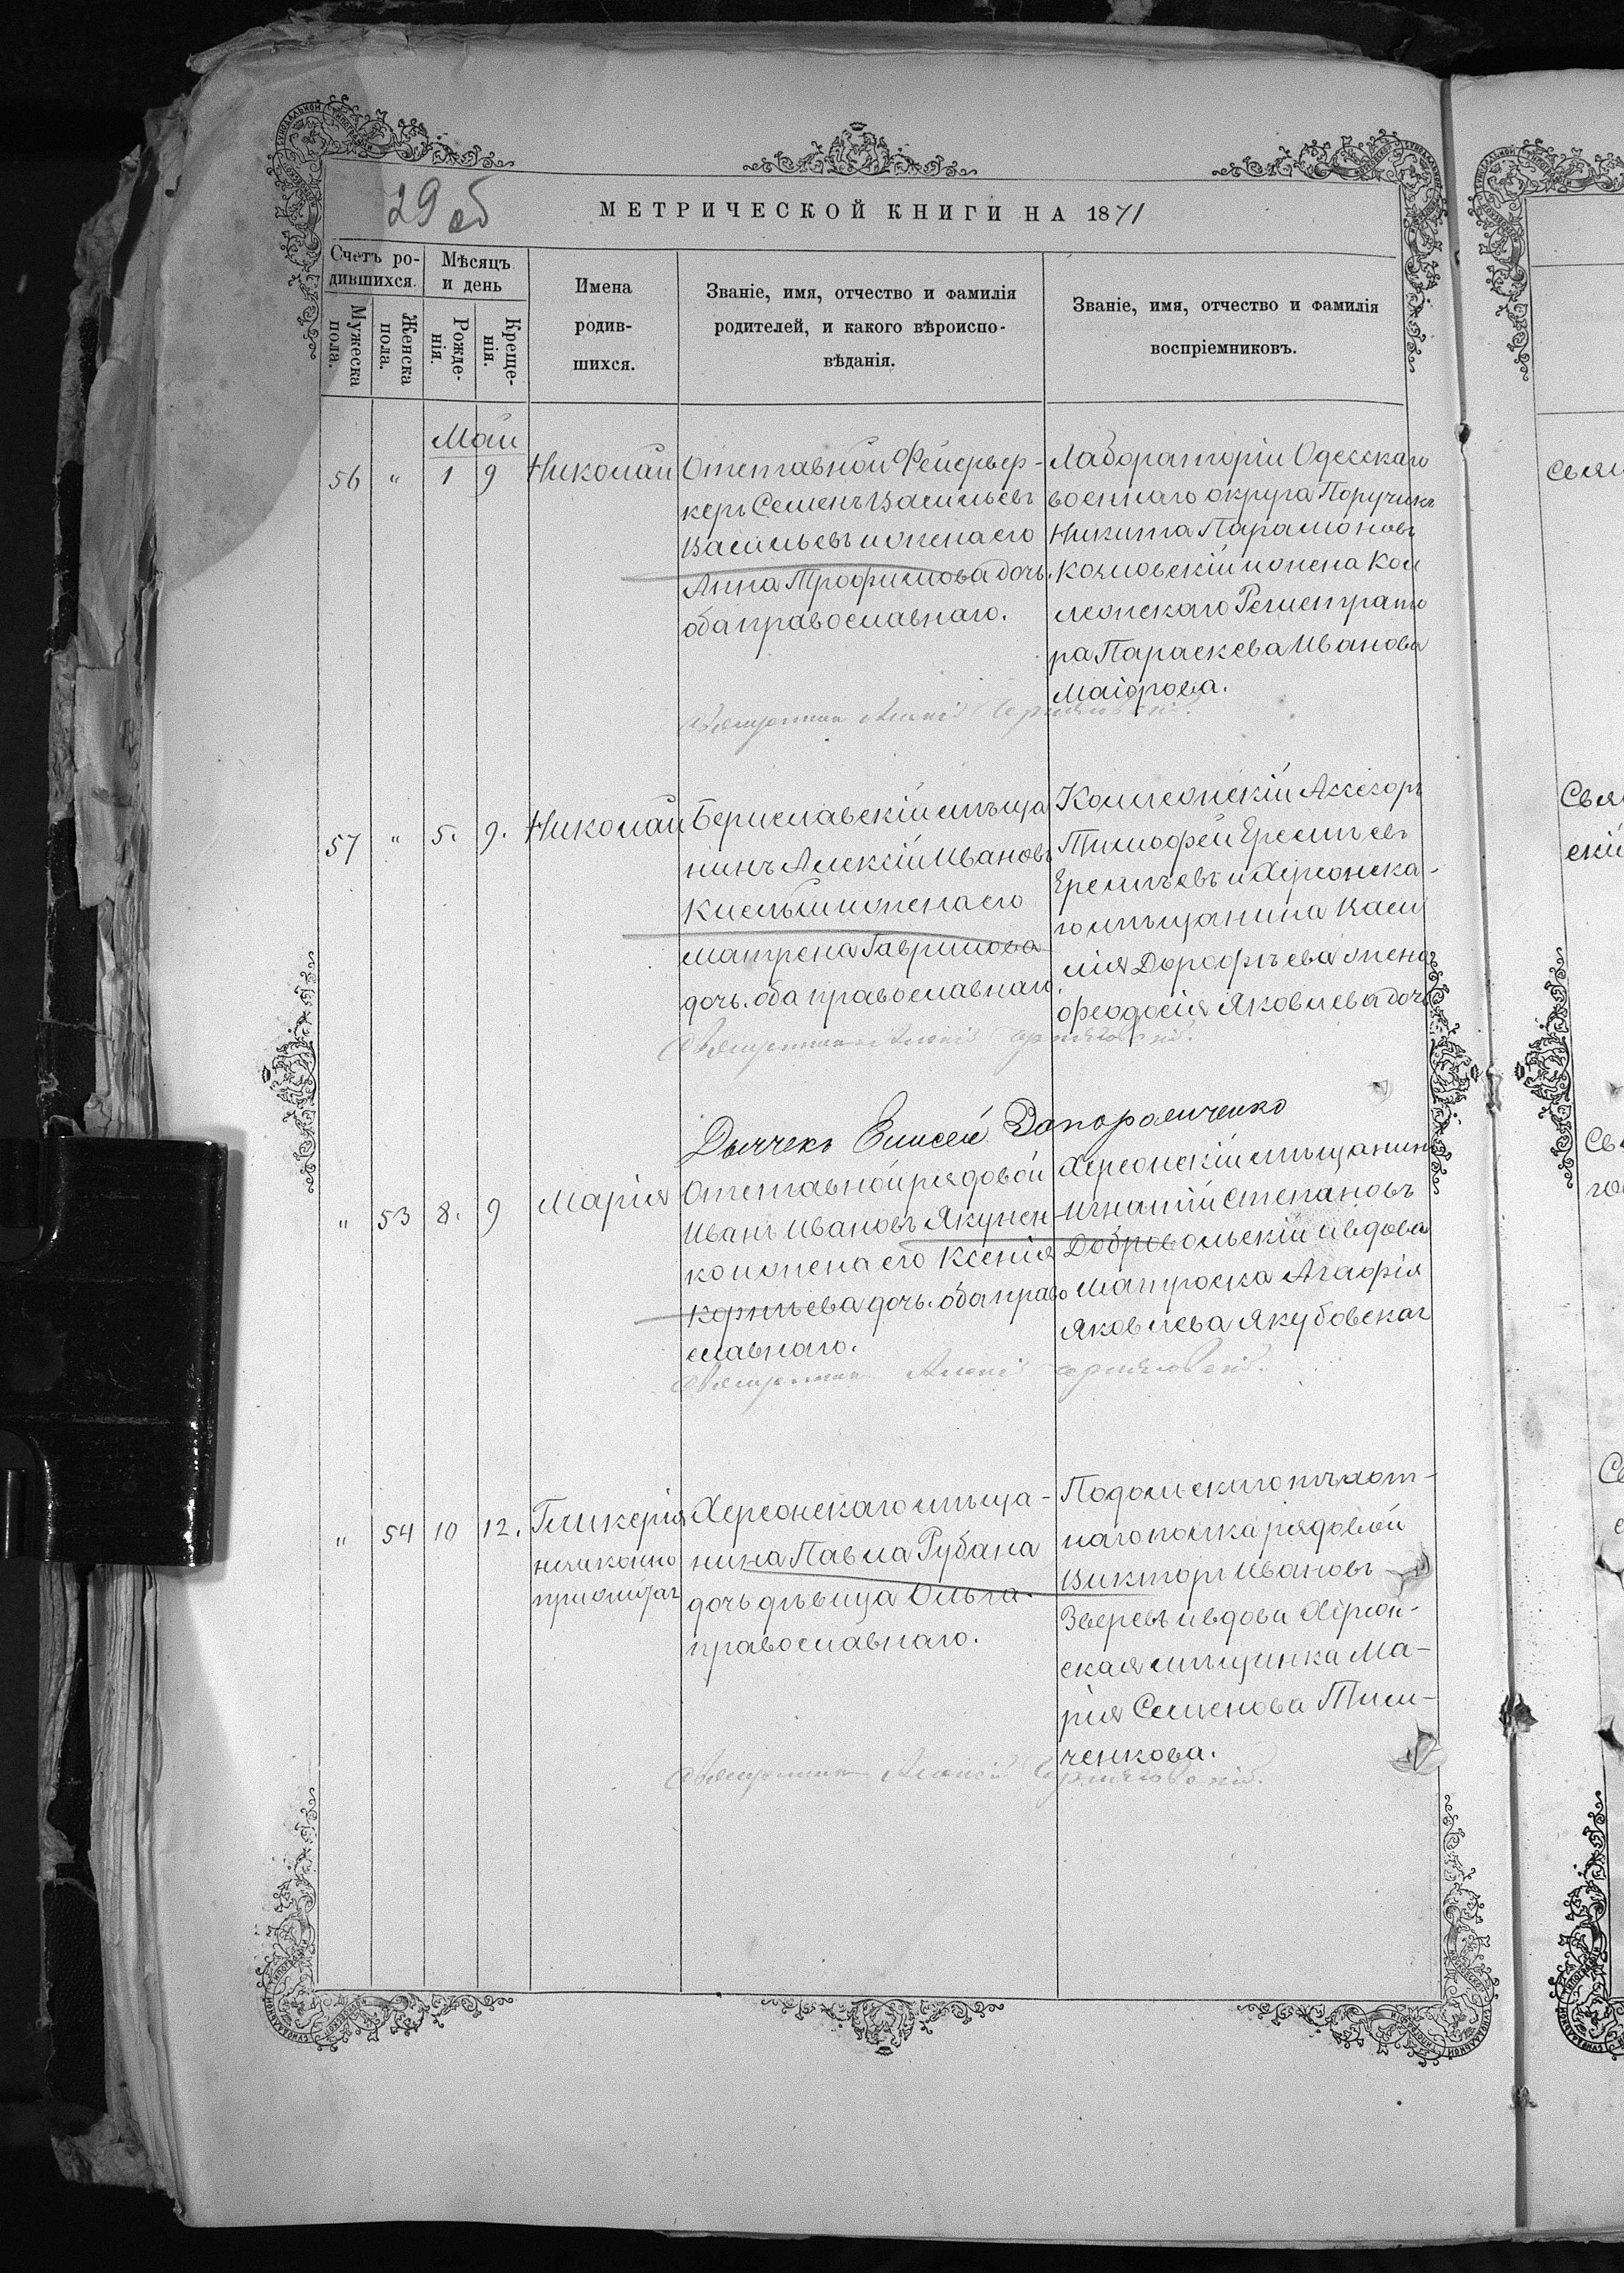 29 об
МЕТРИЧЕСКОЙ КНИГИ НА 1871
Счетъ ро-
дившихся.
Мужеска
пола.
Женска
пола.
Мѣсяцъ
и день
Рожде-
нія.
Креще-
нія.
Имена
родив-
шихся.
Званіе, имя, отчество и фамилія
родителей, и какого вѣроиспо-
вѣданія.
Званіе, имя, отчество и фамилія
воспріемниковъ.
Май
56 " 1 9 Николай
Отставной Фейервер-
керъ Семенъ Васильевъ
Васильевъ и жена его
Анна Трофимова дочь.
оба православнаго.
Лабораторіи Одесскаго
военнаго округа Поручикъ
Никита Парамоновъ
Козловскій и жена Кол
лежскаго Регистрато
ра Параскева Иванова
Маіорова.
Священник Алексій
57 " 5. 9. Николай
Бериславскій мѣща
нинъ Алексій Ивановъ
и жена его
Матрена Гаврилова
дочь. оба православнаго.
Коллежскій Ассесоръ
Тимофей Еремѣевъ
Еремѣевъ и Херсонска-
го мѣщанина Васи
лія Дорофѣева жена
Феодосія Яковлева дочь
Священник Алексій
Дьячекъ Елисей Запорожченко
" 53 8. 9 Марія
Отставной рядовой
Иванъ Ивановъ Якунен-
ко и жена его Ксенія
Корнѣева дочь. оба право
славнаго.
Херсонскій мѣщанинъ
Игнатій Степановъ
Добровольскій и вдова
матроска Агафія
Яковлева Якубовская
Священник Алексій
" 54 10 12. Гликерія
незаконно
прижитая
Херсонскаго мѣща-
нина Павла Рубана
дочь дѣвица Ольга.
православнаго.
Подольскаго пѣхот-
наго полка рядовой
Викторъ Ивановъ
Зверевъ и вдова Херсон-
ская мѣщанка Ма-
рія Семенова Тим-
ченкова.
Священник Алексій